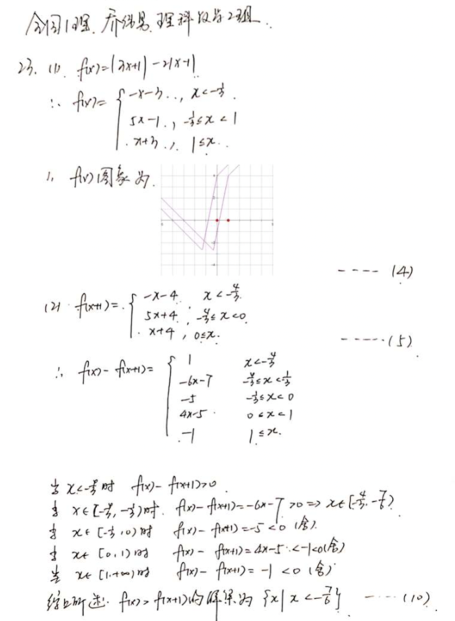 全国1理. 乔继易. 理科数学2组.
23. (1) f(x)=|3x+1|-2|x-1|
∴ f(x)= { -x-3 , x<-1/3 .
5x-1 , -1/3≤x<1
x+3 , 1≤x .
∴ f(x)图象为.
---- (4)
(2) f(x+1)= { -x-4 , x<-4/3
5x+4 , -4/3≤x<0
x+4 , 0≤x.
----- (5)
∴ f(x)-f(x+1)= { 1 x<-4/3
-6x-7 -4/3≤x<-1/3
-5 -1/3≤x<0
4x-5 0≤x<1
-1 1≤x.
当 x<-4/3 时 f(x)-f(x+1)>0
当 x∈[-4/3,-1/3)时. f(x)-f(x+1)=-6x-7>0 => x∈[-4/3,-7/6)
当 x∈[-1/3,0)时 f(x)-f(x+1)=-5<0 (舍)
当 x∈[0,1)时 f(x)-f(x+1)=4x-5<-1<0(舍)
当 x∈[1,+∞)时 f(x)-f(x+1)=-1<0 (舍)
综上所述. f(x)>f(x+1)的解集为 {x|x<-7/6} ---- (10)